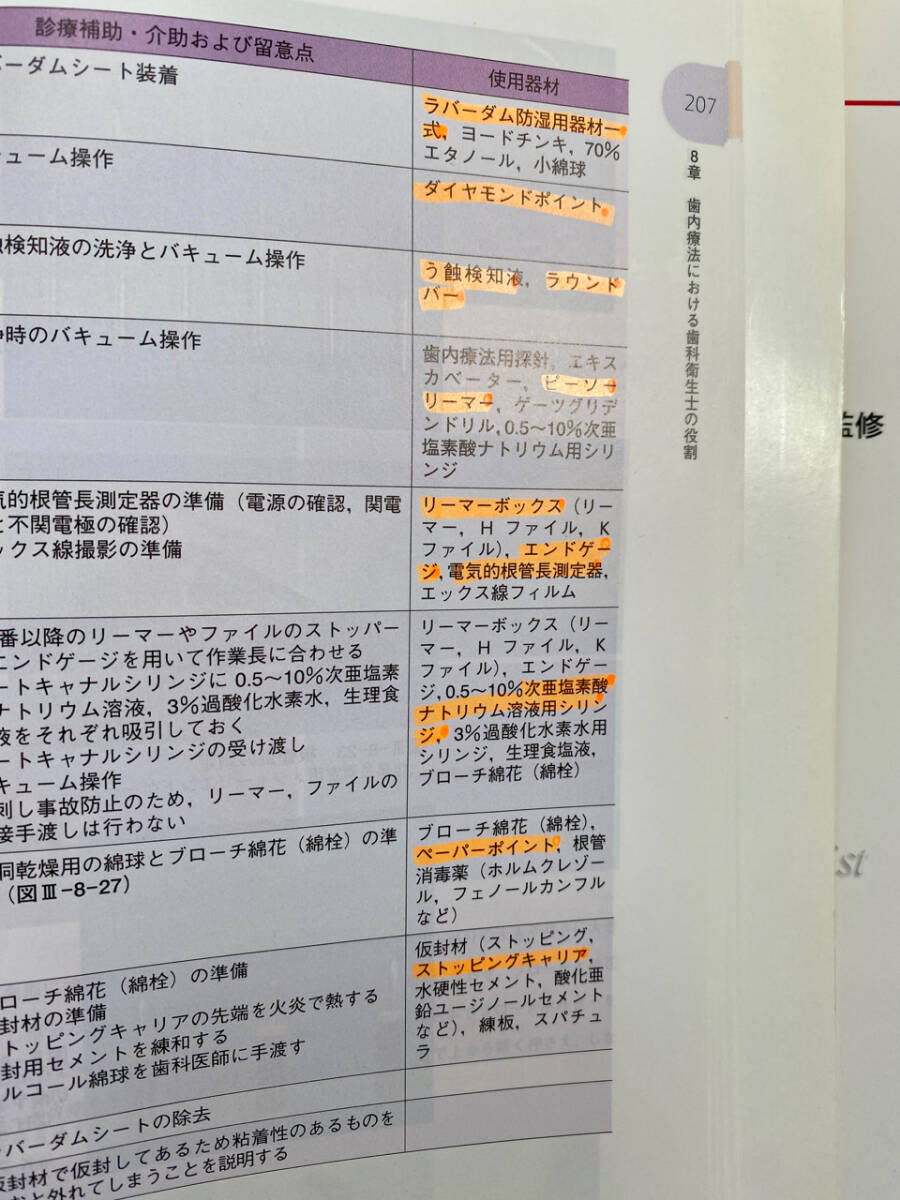 診療補助・介助および留意点
使用器材
ーダムシート装着
ラバーダム防湿用器材一
式，ヨードチンキ，70％
エタノール，小綿球
ューム操作
ダイヤモンドポイント
検知液の洗浄とバキューム操作
う蝕検知液，ラウンド
バー
時のバキューム操作
歯内療法用探針，エキス
カベーター，ピーソー
リーマー，ゲーツグリデ
ンドリル，0.5〜10％次亜
塩素酸ナトリウム用シリ
ンジ
気的根管長測定器の準備（電源の確認，関電
と不関電極の確認）
ックス線撮影の準備
リーマーボックス（リー
マー，H ファイル，K
ファイル），エンドゲー
ジ，電気的根管長測定器，
エックス線フィルム
番以降のリーマーやファイルのストッパー
エンドゲージを用いて作業長に合わせる
ートキャナルシリンジに 0.5〜10％次亜塩素
ナトリウム溶液，3％過酸化水素水，生理食
液をそれぞれ吸引しておく
ートキャナルシリンジの受け渡し
キューム操作
刺し事故防止のため，リーマー，ファイルの
接手渡しは行わない
リーマーボックス（リー
マー，H ファイル，K
ファイル），エンドゲー
ジ，0.5〜10％次亜塩素酸
ナトリウム溶液用シリン
ジ，3％過酸化水素水用
シリンジ，生理食塩液，
ブローチ綿花（綿栓）
同乾燥用の綿球とブローチ綿花（綿栓）の準
（図Ⅲ-8-27）
ブローチ綿花（綿栓），
ペーパーポイント，根管
消毒薬（ホルムクレゾー
ル，フェノールカンフル
など）
ローチ綿花（綿栓）の準備
封材の準備
トッピングキャリアの先端を火炎で熱する
封用セメントを練和する
ルコール綿球を歯科医師に手渡す
仮封材（ストッピング，
ストッピングキャリア，
水硬性セメント，酸化亜
鉛ユージノールセメント
など），練板，スパチュ
ラ
バーダムシートの除去
仮封材で仮封してあるため粘着性のあるものを
と外れてしまうことを説明する
207
8章 歯内療法における歯科衛生士の役割
監修
st